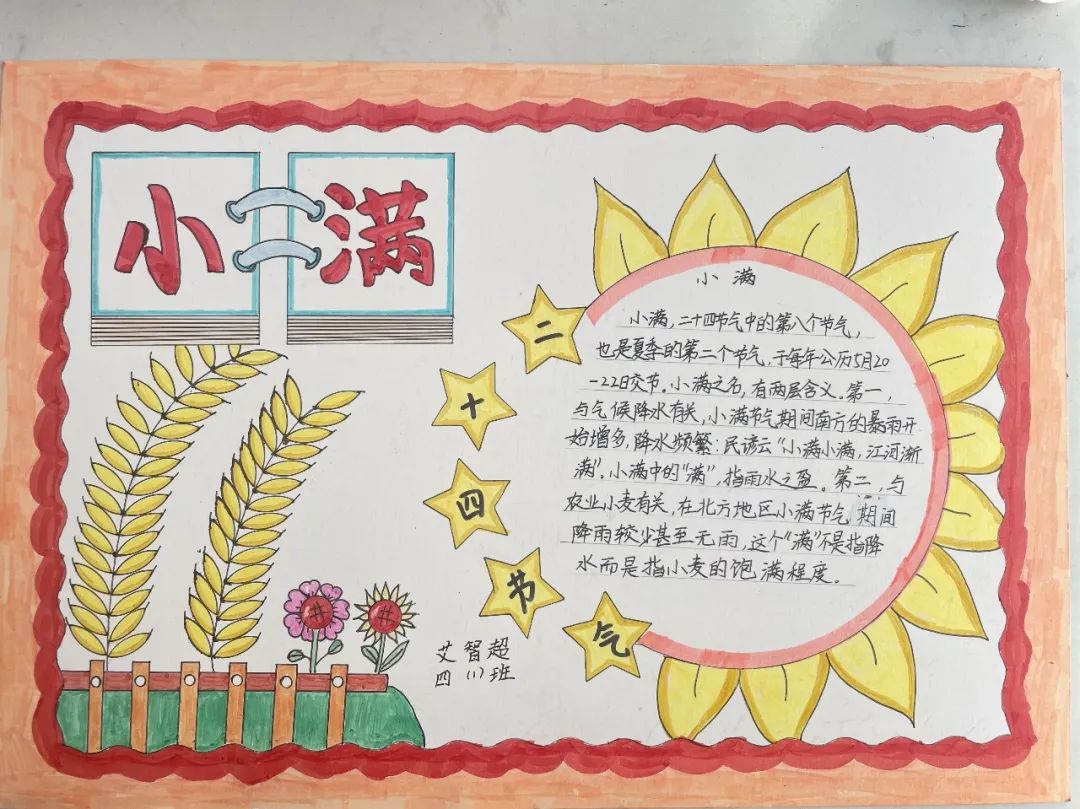 小满
二十四节气
小满
小满,二十四节气中的第八个节气,
也是夏季的第二个节气,于每年公历5月20
-22日交节。小满之名,有两层含义。第一,
与气候降水有关,小满节气期间南方的暴雨开
始增多,降水频繁;民谚云“小满小满,江河渐
满”。小满中的“满”,指雨水之盈。第二,与
农业小麦有关,在北方地区小满节气期间
降雨较少甚至无雨,这个“满”不是指降
水而是指小麦的饱满程度。
艾智超
四(1)班